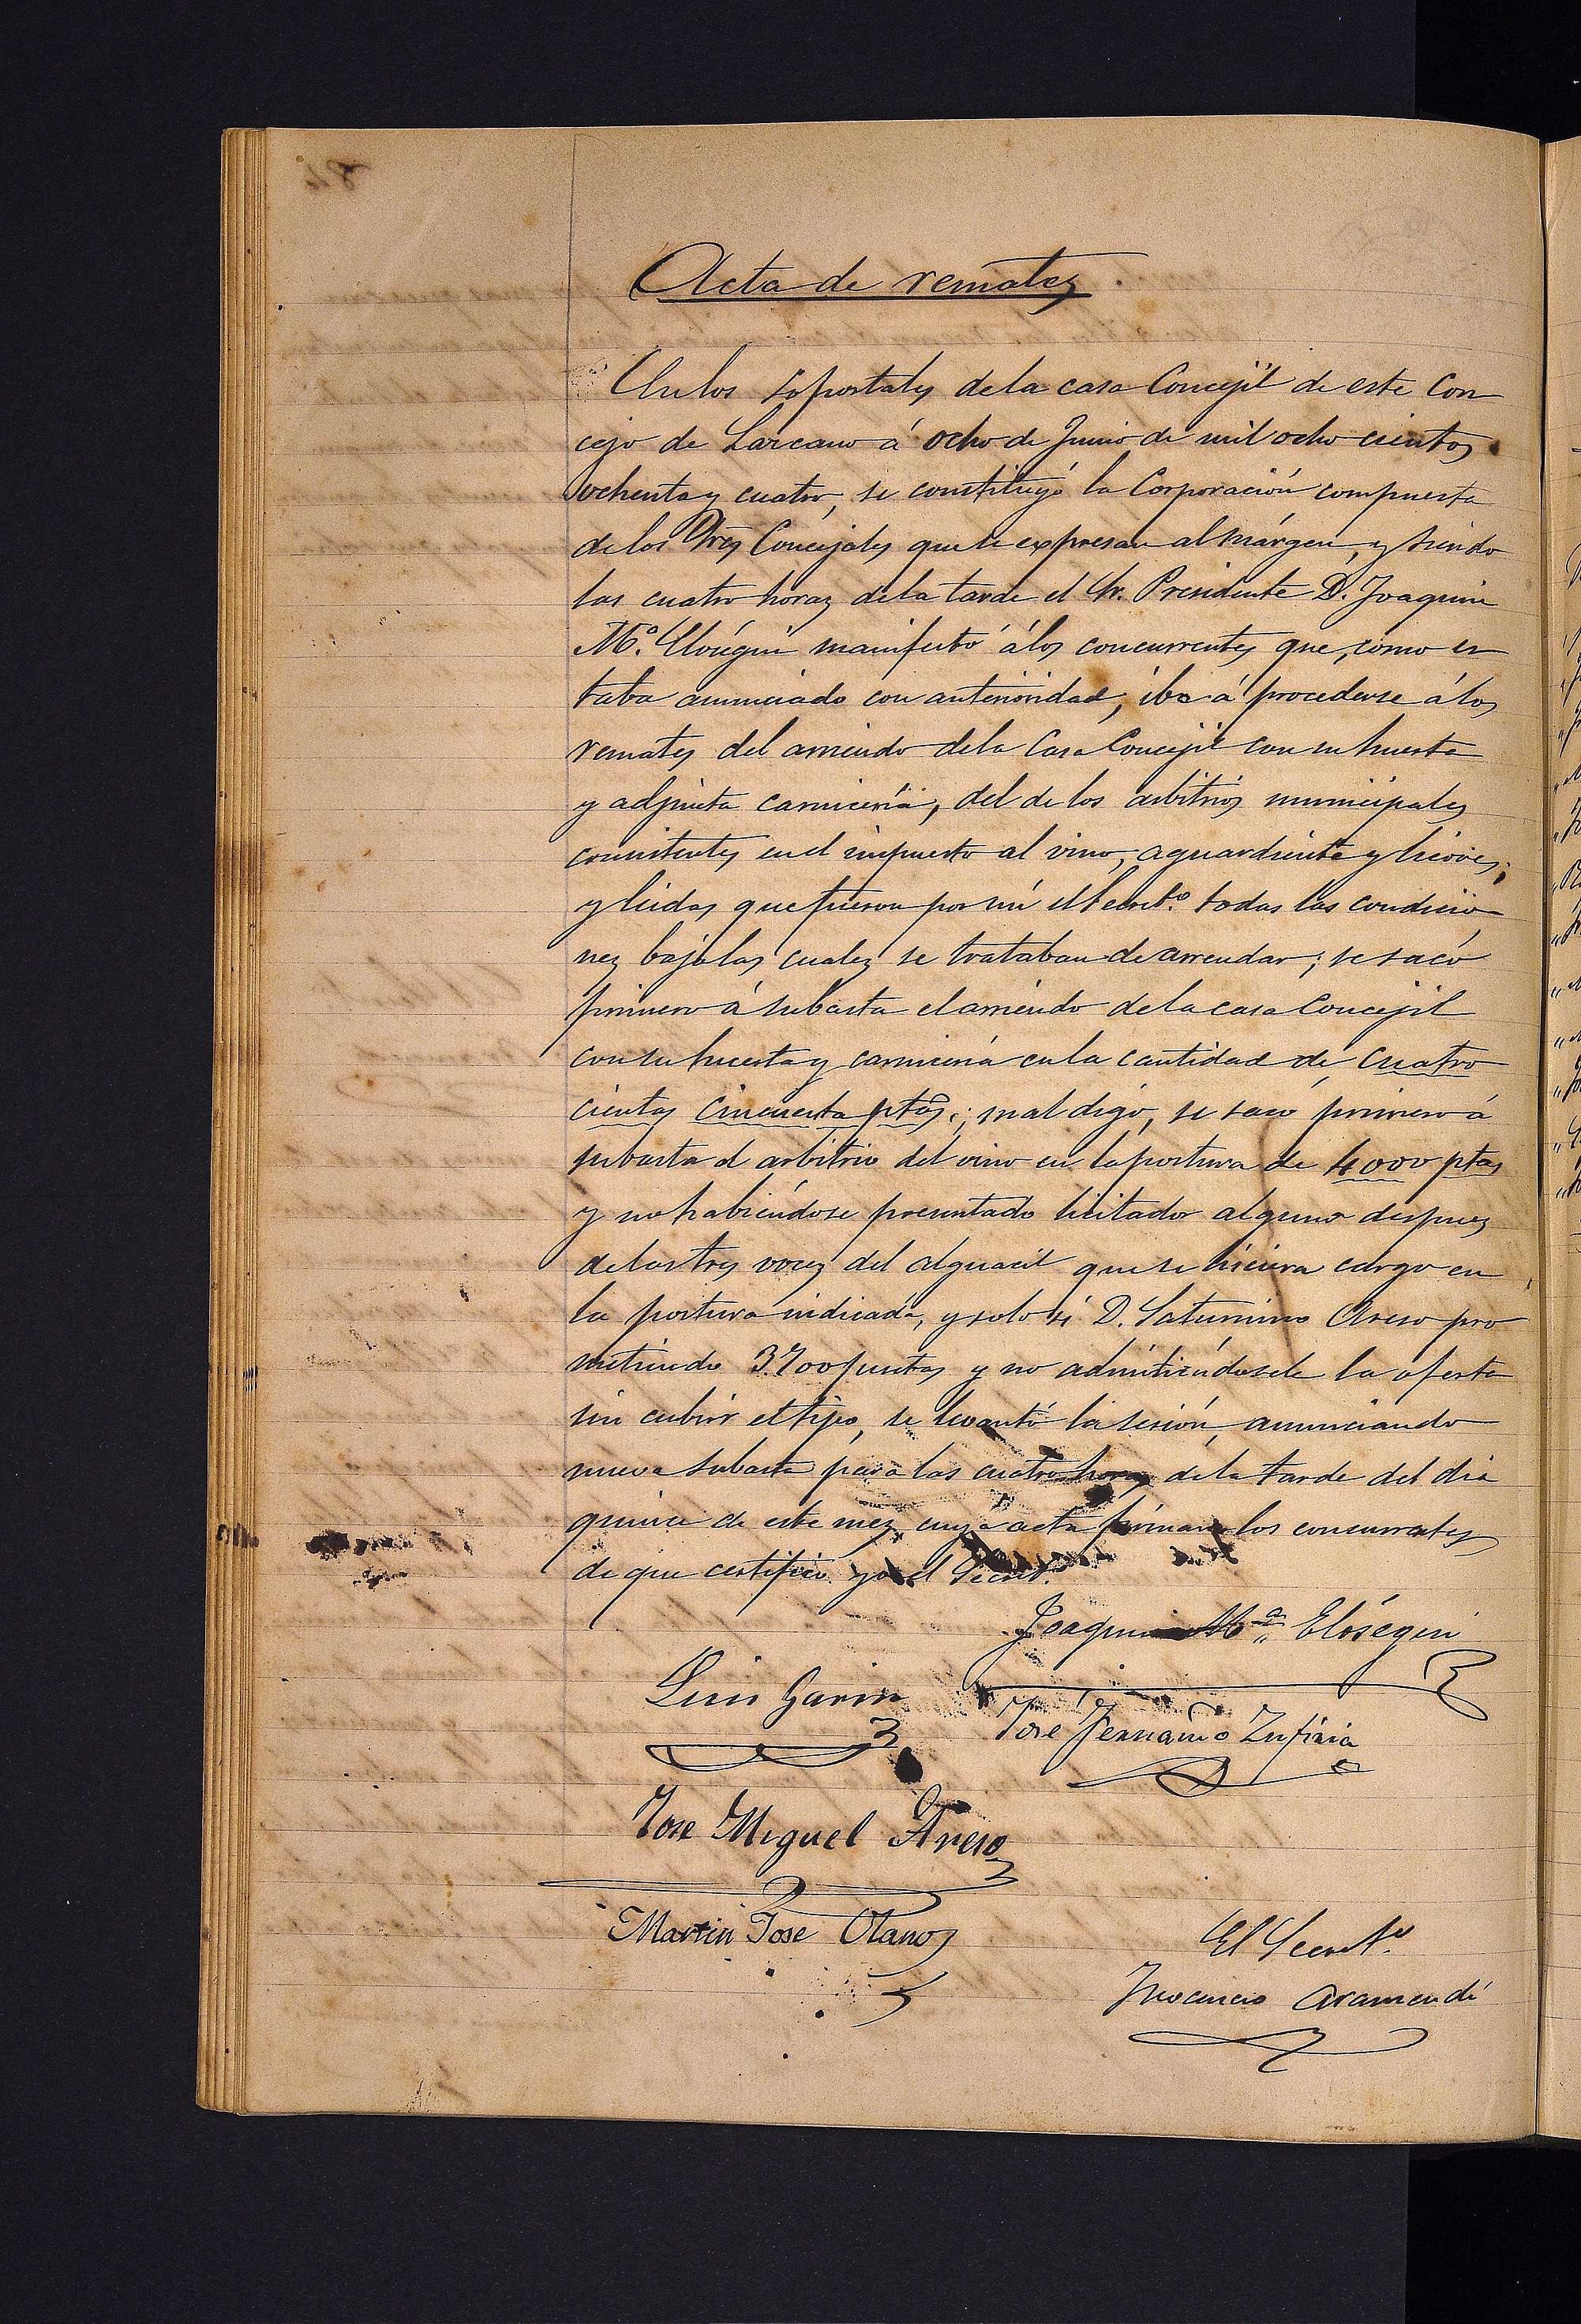 Acta de remates.
En los soportales de la casa Concejil de este Con
cejo de Lazcano á ocho de Junio de mil ocho cientos
ochenta y cuatro, se constituyó la Corporación compuesta
de los Sres Concejales que se expresan al márgen, y siendo
las cuatro horas de la tarde el Sr. Presidente D. Joaquin
Mª. Elóegui manifestó á los concurrentes que, como es
taba anunciado con anterioridad, iba á procederse á los
remates del arriendo de la Casa Concejil con su huerta
y adjunta carniceria, del de los arbitrios municipales
consistentes en el impuesto al vino, aguardiente y licores;
y leidas que fueron por mí el Secretº. todas las condicio
nes bajo las cuales se trataban de arrendar; se sacó
primero á subasta el arriendo de la casa Concejil
con su huerta y carniceria en la cantidad de cuatro
cientas cincuenta ptas.; mal digo, se sacó primero á
subasta el arbitrio del vino en la postura de 4000 ptas
y no habiéndose presentado licitador alguno despues
de las tres voces del alguacil que se hiciera cargo en
la postura indicada, y solo sí D. Saturnino Areso pro
metiendo 3.700 pesetas y no admitiéndosele la oferta
sin cubrir el tipo, se levantó la sesión, anunciando
nueva subasta para las cuatro horas de la tarde del dia
quince de este mes, cuya acta firman los concurrentes
de que certifico yo el Secretº.
Joaquin Mª Elósegui
Luis Garin
José Fernando Zufiria
Jose Miguel Areso
Martin Jose Otano
El Secretº
Inocencio Aramendi